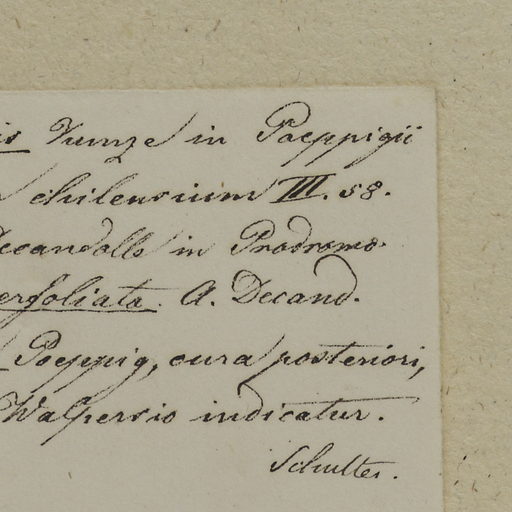 is Kunze in Poeppigii
chilensium III. 58.
Decandolle in Prodromo
erfoliata. A. Decand.
Poeppig, cura posteriori,
Walpersio indicatur.
Schultes.